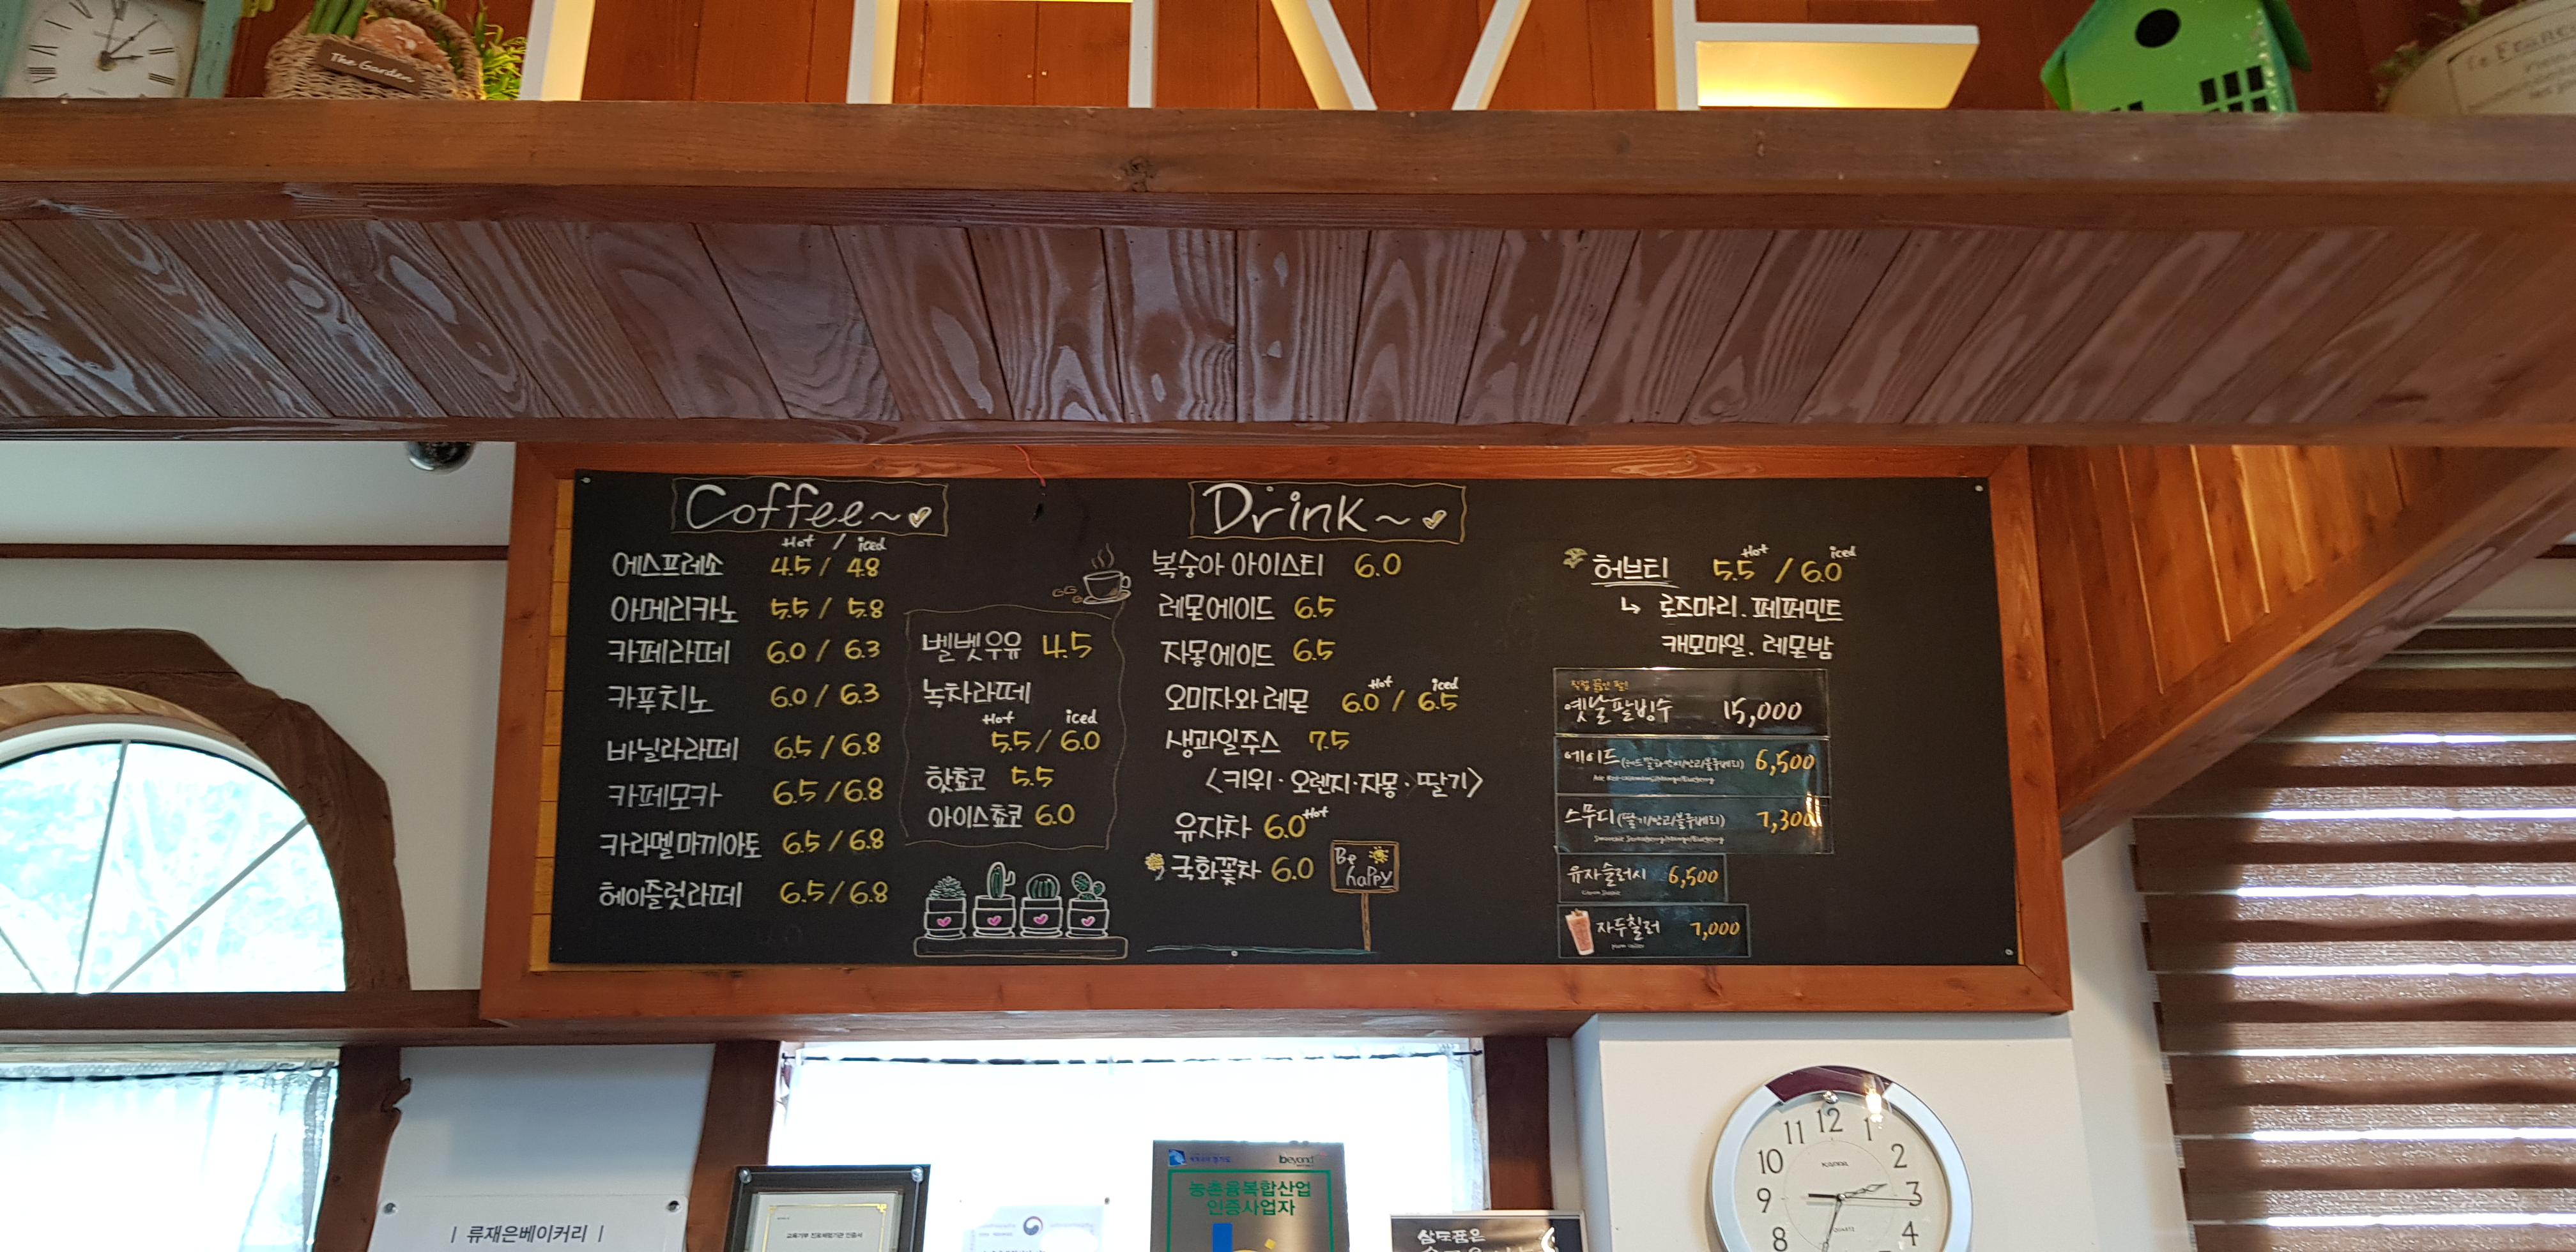 The Garden
Coffee~
Hot / iced
에스프레소 4.5 / 4.8
아메리카노 5.5 / 5.8
카페라떼 6.0 / 6.3
카푸치노 6.0 / 6.3
바닐라라떼 6.5 / 6.8
카페모카 6.5 / 6.8
카라멜마끼아토 6.5 / 6.8
헤이즐럿라떼 6.5 / 6.8
벨벳우유 4.5
녹차라떼
Hot iced
5.5 / 6.0
핫쵸코 5.5
아이스쵸코 6.0
Drink~
복숭아 아이스티 6.0
레몬에이드 6.5
자몽에이드 6.5
Hot iced
오미자와 레몬 6.0 / 6.5
생과일주스 7.5
<키위·오렌지·자몽·딸기>
유자차 6.0 Hot
국화꽃차 6.0
Be
happy
Hot iced
허브티 5.5 / 6.0
↳ 로즈마리. 페퍼민트
캐모마일. 레몬밤
직접 끓인 팥!
옛날팥빙수 15,000
에이드 6,500
스무디(딸기/망고/블루베리) 7,300
유자슬러시 6,500
자두칠러 7,000
| 류재은베이커리 |
교육기부 진로체험기관 인증서
beyond
농촌융복합산업
인증사업자
12
11 1
10 2
9 3
8 4
QUARTZ